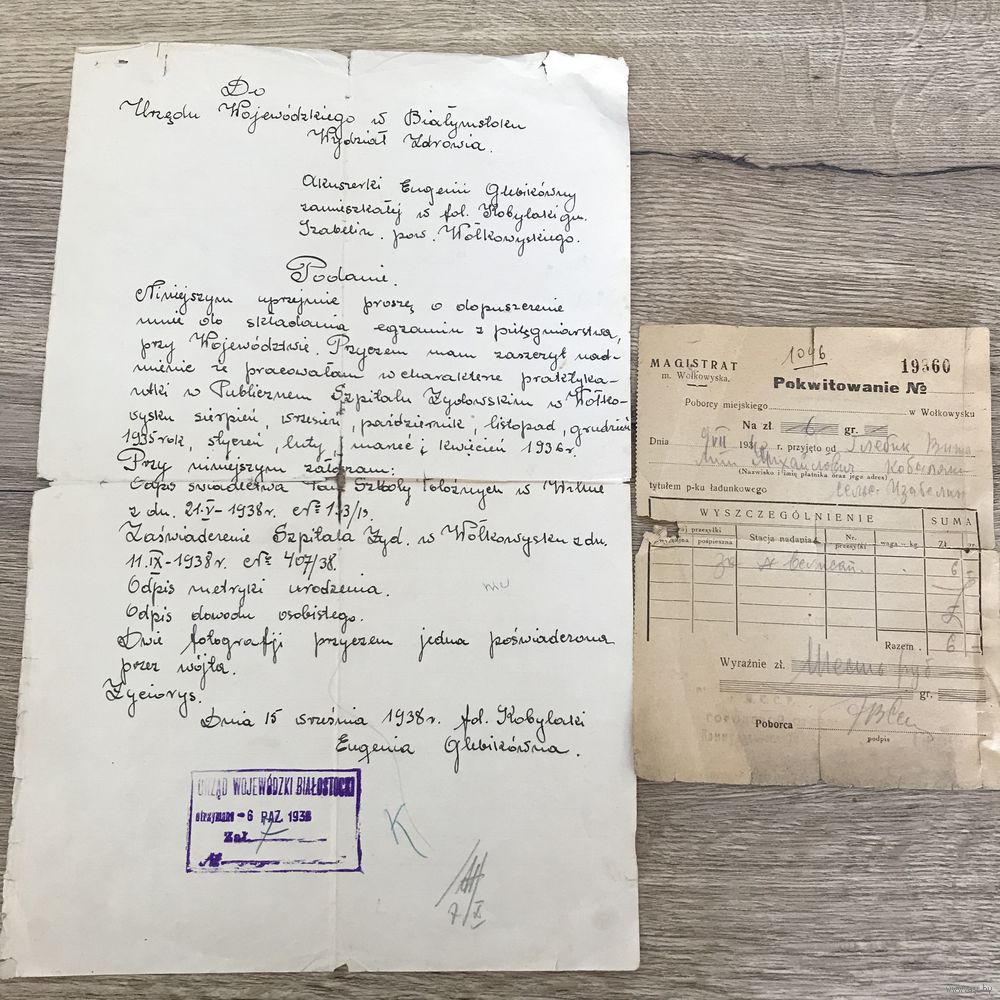 Do
Urzędu Wojewódzkiego w Białymstoku
Wydział Zdrowia.
Akuszerki Eugenii Glebikówny
zamieszkałej w fol. Kobylaki gm.
Izabelin. pow. Wołkowyskiego.
Podanie.
Niniejszym uprzejmie proszę o dopuszczenie
mnie do składania egzaminu z pielęgniarstwa,
przy Województwie. Przyczem mam zaszczyt nad-
mienić że pracowałam w charakterze praktyka-
ntki w Publicznem Szpitalu Żydowskim w Wołko-
wysku sierpień, wrzesień, październik, listopad, grudzień
1935 rok, styczeń, luty, marzec i kwiecień 1936 r.
Przy niniejszym załączam:
Odpis świadectwa Pań. Szkoły Położnych w Wilnie
z dn. 21-V-1938r. №
Zaświadczenie Szpitala Żyd. w Wołkowysku z dn.
11.IX-1938 r. № 407/38.
Odpis metryki urodzenia.
Odpis dowodu osobistego.
Dwie fotografji przyczem jedna poświadczona
przez wójta.
Życiorys.
Dnia 15 września 1938 r. fol. Kobylaki
Eugenia Glebikówna.
URZĄD WOJEWÓDZKI BIAŁOSTOCKI
otrzymano - 6 PAŹ. 1938
Zał. 7
№
K
7/X
1096
MAGISTRAT
m. Wołkowyska.
19360
Pokwitowanie №
Poborcy miejskiego w Wołkowysku
Na zł. 6 gr.
Dnia 9 VII 194 r. przyjęto od Глебик
Михайлович
(Nazwisko i imię płatnika oraz jego adres)
tytułem p-ku ładunkowego Изабелин
WYSZCZEGÓLNIENIE SUMA
przesyłki
pośpieszna Stacja nadania Nr. przesyłki waga w kg Zł. gr.
за 6 -
Razem . 6 -
Wyraźnie zł. Шесть руб
gr.
Poborca
podpis